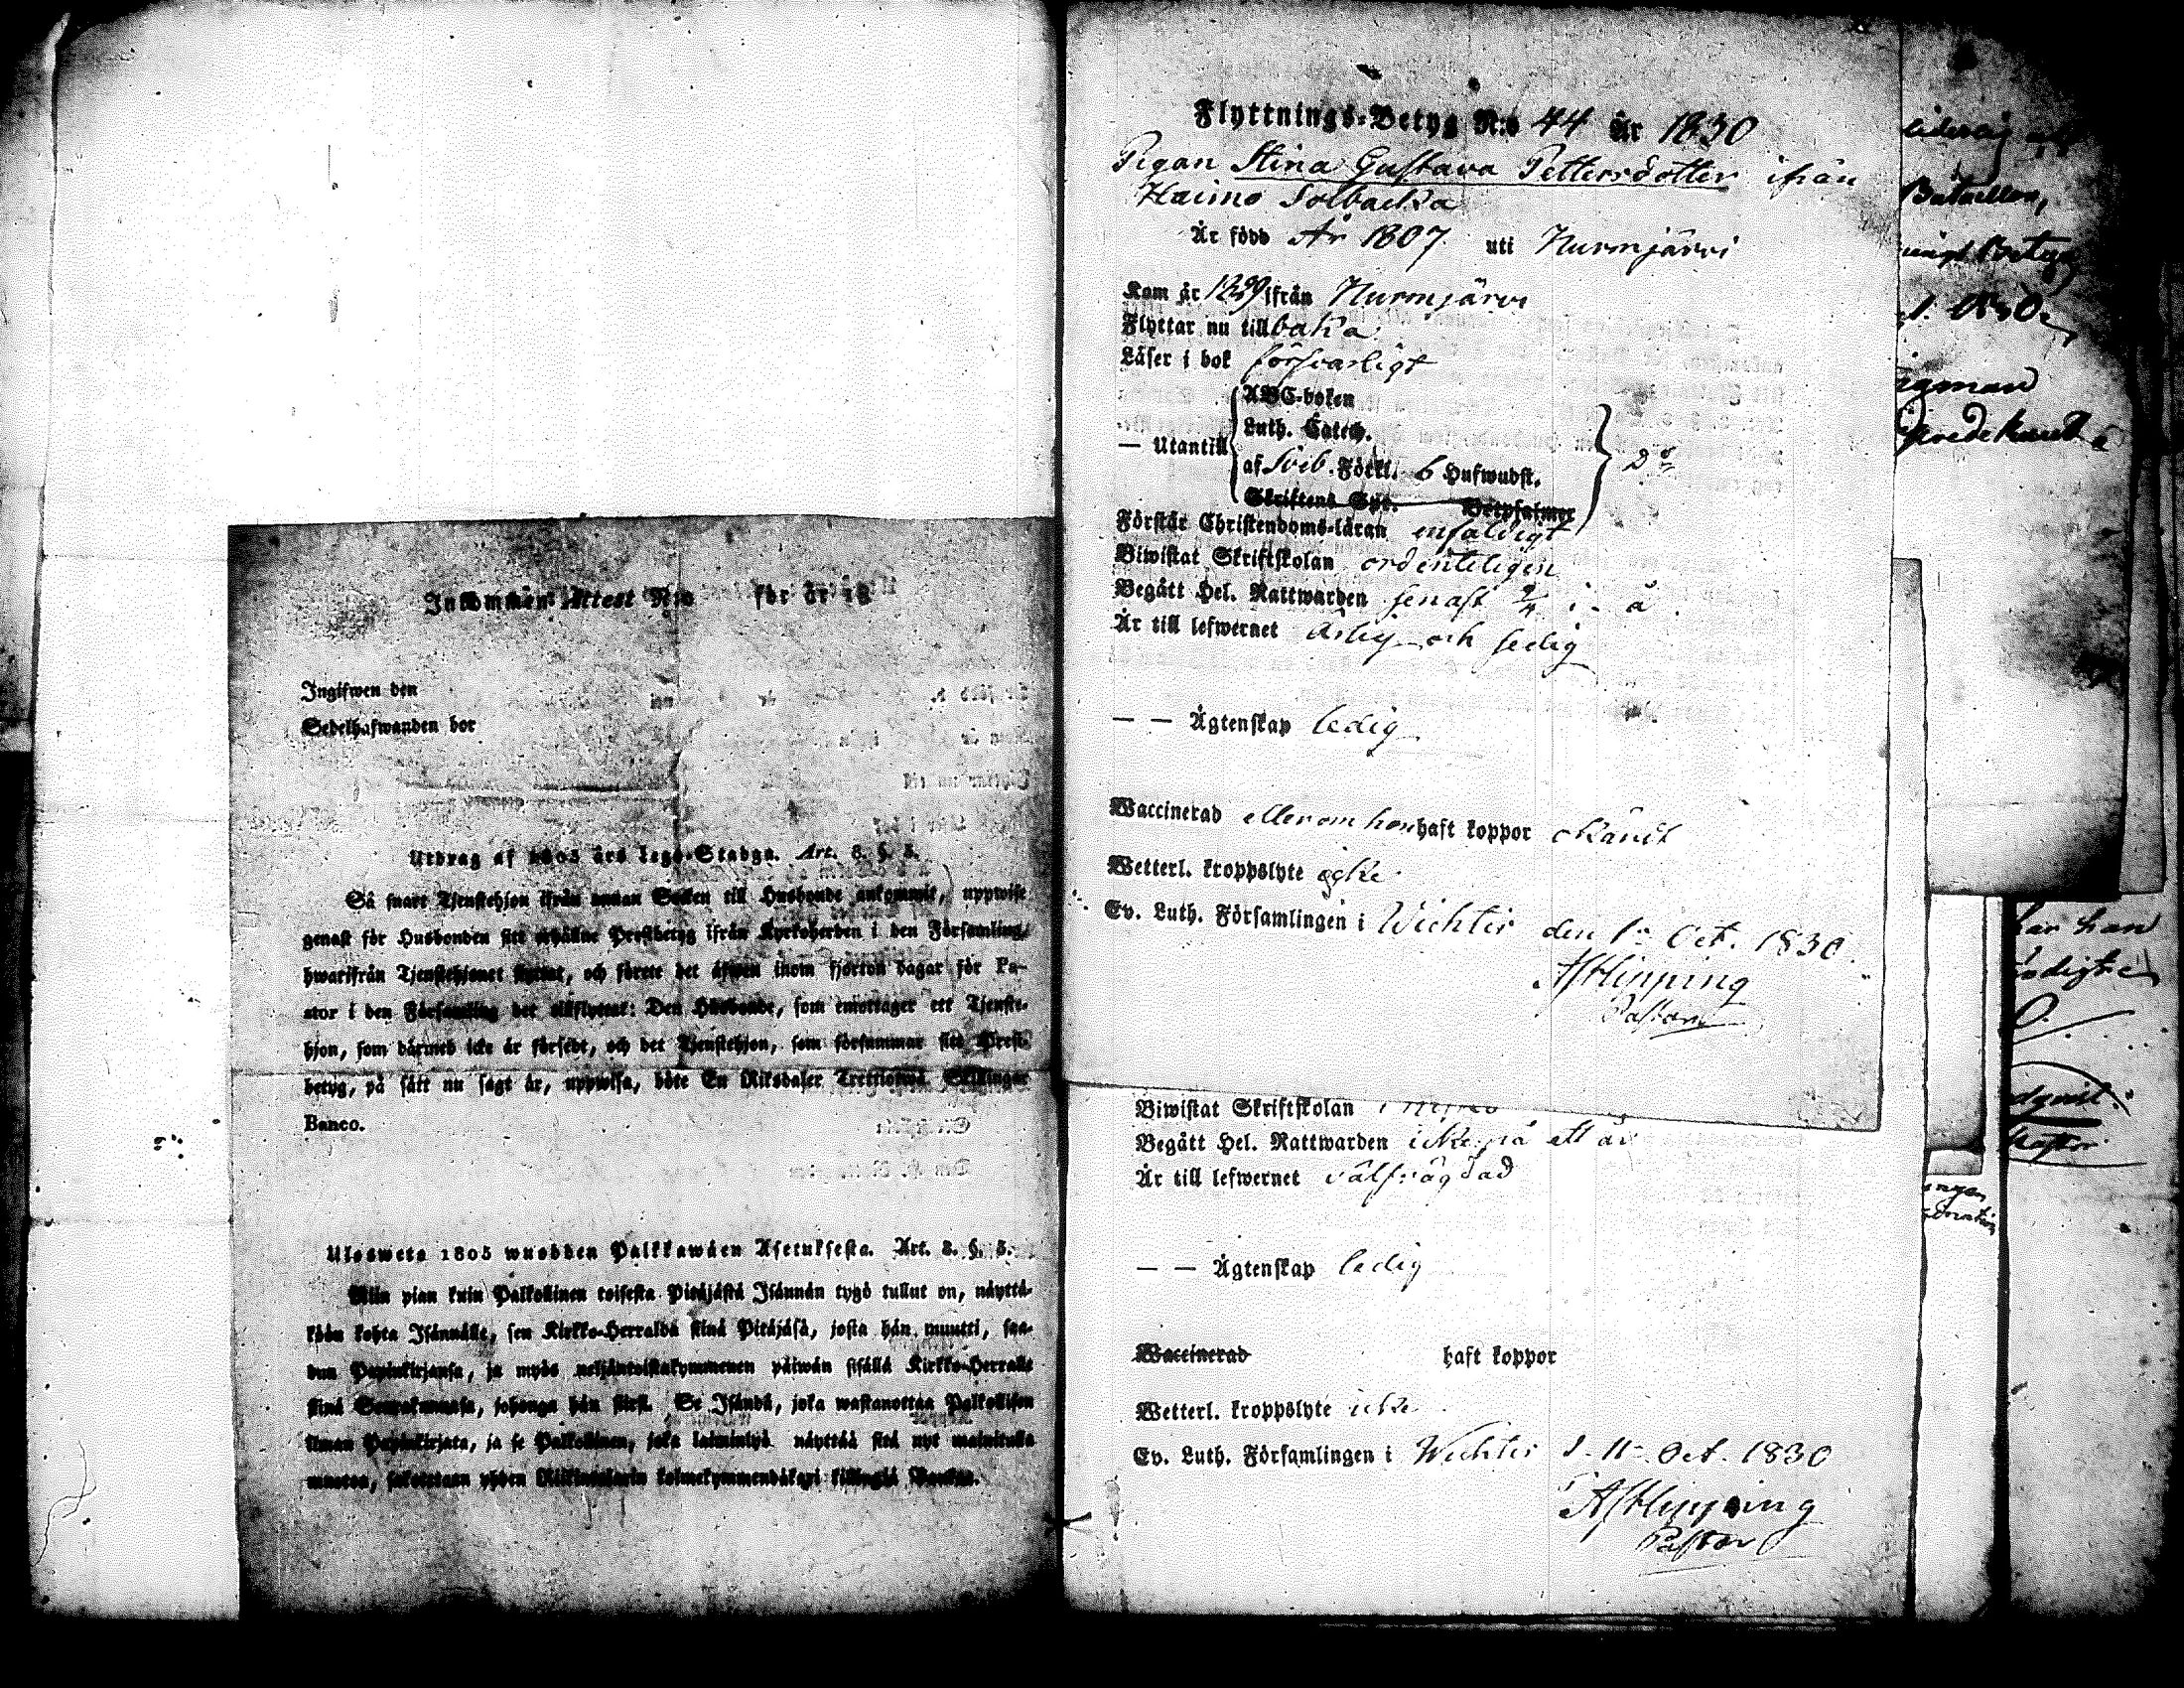 Inkommen Attest N:o för år 18
Ingifwen den
Sedelhafwanden bor
Utdrag af 1805 års Lego-Stadga. Art. 8. §. 5.
Så snart Tjenstehjon ifrån annan Socken till Husbonde ankommit, uppwise
genast för Husbonden sitt erhållne Prestbetyg ifrån Kyrkoherden i den Församling,
hwarifrån Tjenstehjonet flyttat, och förete det äfwen inom fjorton dagar för Pa-
stor i den Församling det tillflyttat: Den Husbonde, som emottager ett Tjenste-
hjon, som därmed icke är försedt, och det Tjenstehjon, som försummar sitt Prest-
betyg, på sätt nu sagt är, uppwisa, böte En Riksdaler Trettiotwå Skillingar
Banco.
Ulosweto 1805 wuodden Palkkawäen Asetuksesta. Art. 8. §. 5.
Niin pian kuin Palkollinen toisesta Pitäjästä Isännän tygö tullut on, näyttä-
köön kohta Isännälle, sen Kirkko-Herralda siinä Pitäjäsä, josta hän muutti, saa-
dun Papinkirjansa, ja myös neljäntoistakymmenen päiwän sisällä Kirkko-Herralle
siinä Seurakunnasa, johonga hän siirsi. Se Isändä, joka wastanottaa Palkollisen
ilman Papinkirjata, ja se Palkollinen, joka laiminlyö näyttää sitä nyt mainitulla
muotoa, sakotetaan yhden Riikintalarin kolmekymmendäkaxi killingiä Bankos.
Flyttnings-Betyg N:o 44 År 1830
Pigan Stina Gustava Pettersdotter ifrån
Haimo Solbacka
Är född År 1807 uti Nurmjärvi
Kom år 1829 ifrån Nurmjärvi
Flyttar nu tillbaka
Läser i bok försvarligt
ABC-boken
Luth. Catech.
— Utantill af Sveb. Förkl. 6 Hufwudst. Do
Skriftens Spr. — Botpsalmer
Förstår Christendoms-läran enfaldigt
Biwistat Skriftskolan ordenteligen
Begått Hel. Nattwarden senast i. å.
Är till lefwernet ärlig och sedig
— — Ägtenskap ledig
Waccinerad eller om hon haft koppor okändt
Wetterl. kroppslyte icke
Ev. Luth. Församlingen i Wichtis den 1 Oct. 1830.
AJ Hipping
Pastor
Biwistat Skriftskolan
Begått Hel. Nattwarden icke på ett år
Är till lefwernet välfrägdad
— — Ägtenskap ledig
Waccinerad haft koppor
Wetterl. kroppslyte icke
Ev. Luth. Församlingen i Wichtis d. 11 Oct. 1830
AJ Hipping
Pastor
Bataillon,
har han